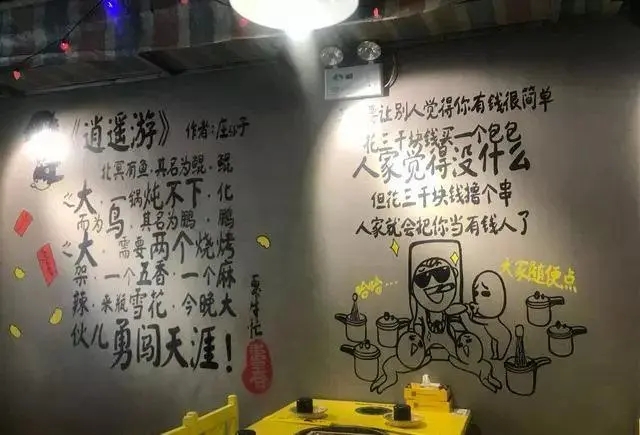 《逍遥游》 作者：庄小子
北冥有鱼，其名为鲲，鲲
之大，一锅炖不下，化
而为鸟，其名为鹏，鹏
之大，需要两个烧烤
架，一个五香，一个麻
辣，来瓶雪花，今晚大
伙儿勇闯天涯！
要让别人觉得你有钱很简单
花三千块钱买一个包包
人家觉得没什么
但花三千块钱撸个串
人家就会把你当有钱人了
哈哈…
大家随便点